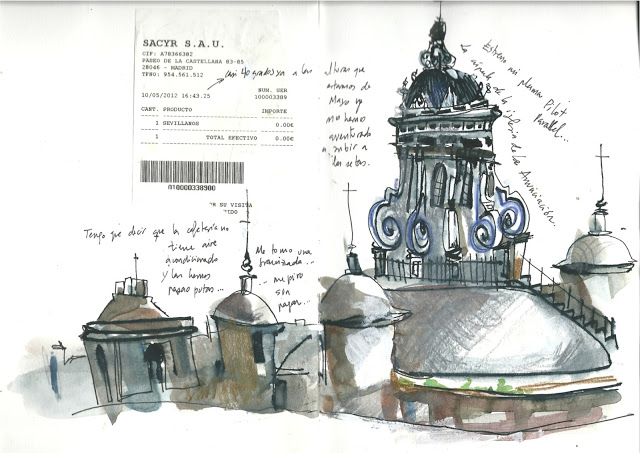 SACYR S.A.U.
CIF: A78366382
PASEO DE LA CASTELLANA 83-85
28046 - MADRID
TFNO: 954.561.512
NUM. SER
10/05/2012 16:43.25 100003389
CANT. PRODUCTO IMPORTE
1 SEVILLANOS 0.00€
1 TOTAL EFECTIVO 0.00€
010000338900
SU VISITA
casi 40 grados ya a las
alturas que
estamos de
Mayo y
me
aventurado
a subir a
las setas.
Estreno mi pluma Pilot
Parallel...
La cúpula de la Iglesia de la Anunciación.
Tengo que decir que la cafetería no
tiene aire
acondicionado
y las hemos
pasao putas...
Me tomo una
granizada...
... me piro
sin
pagar...